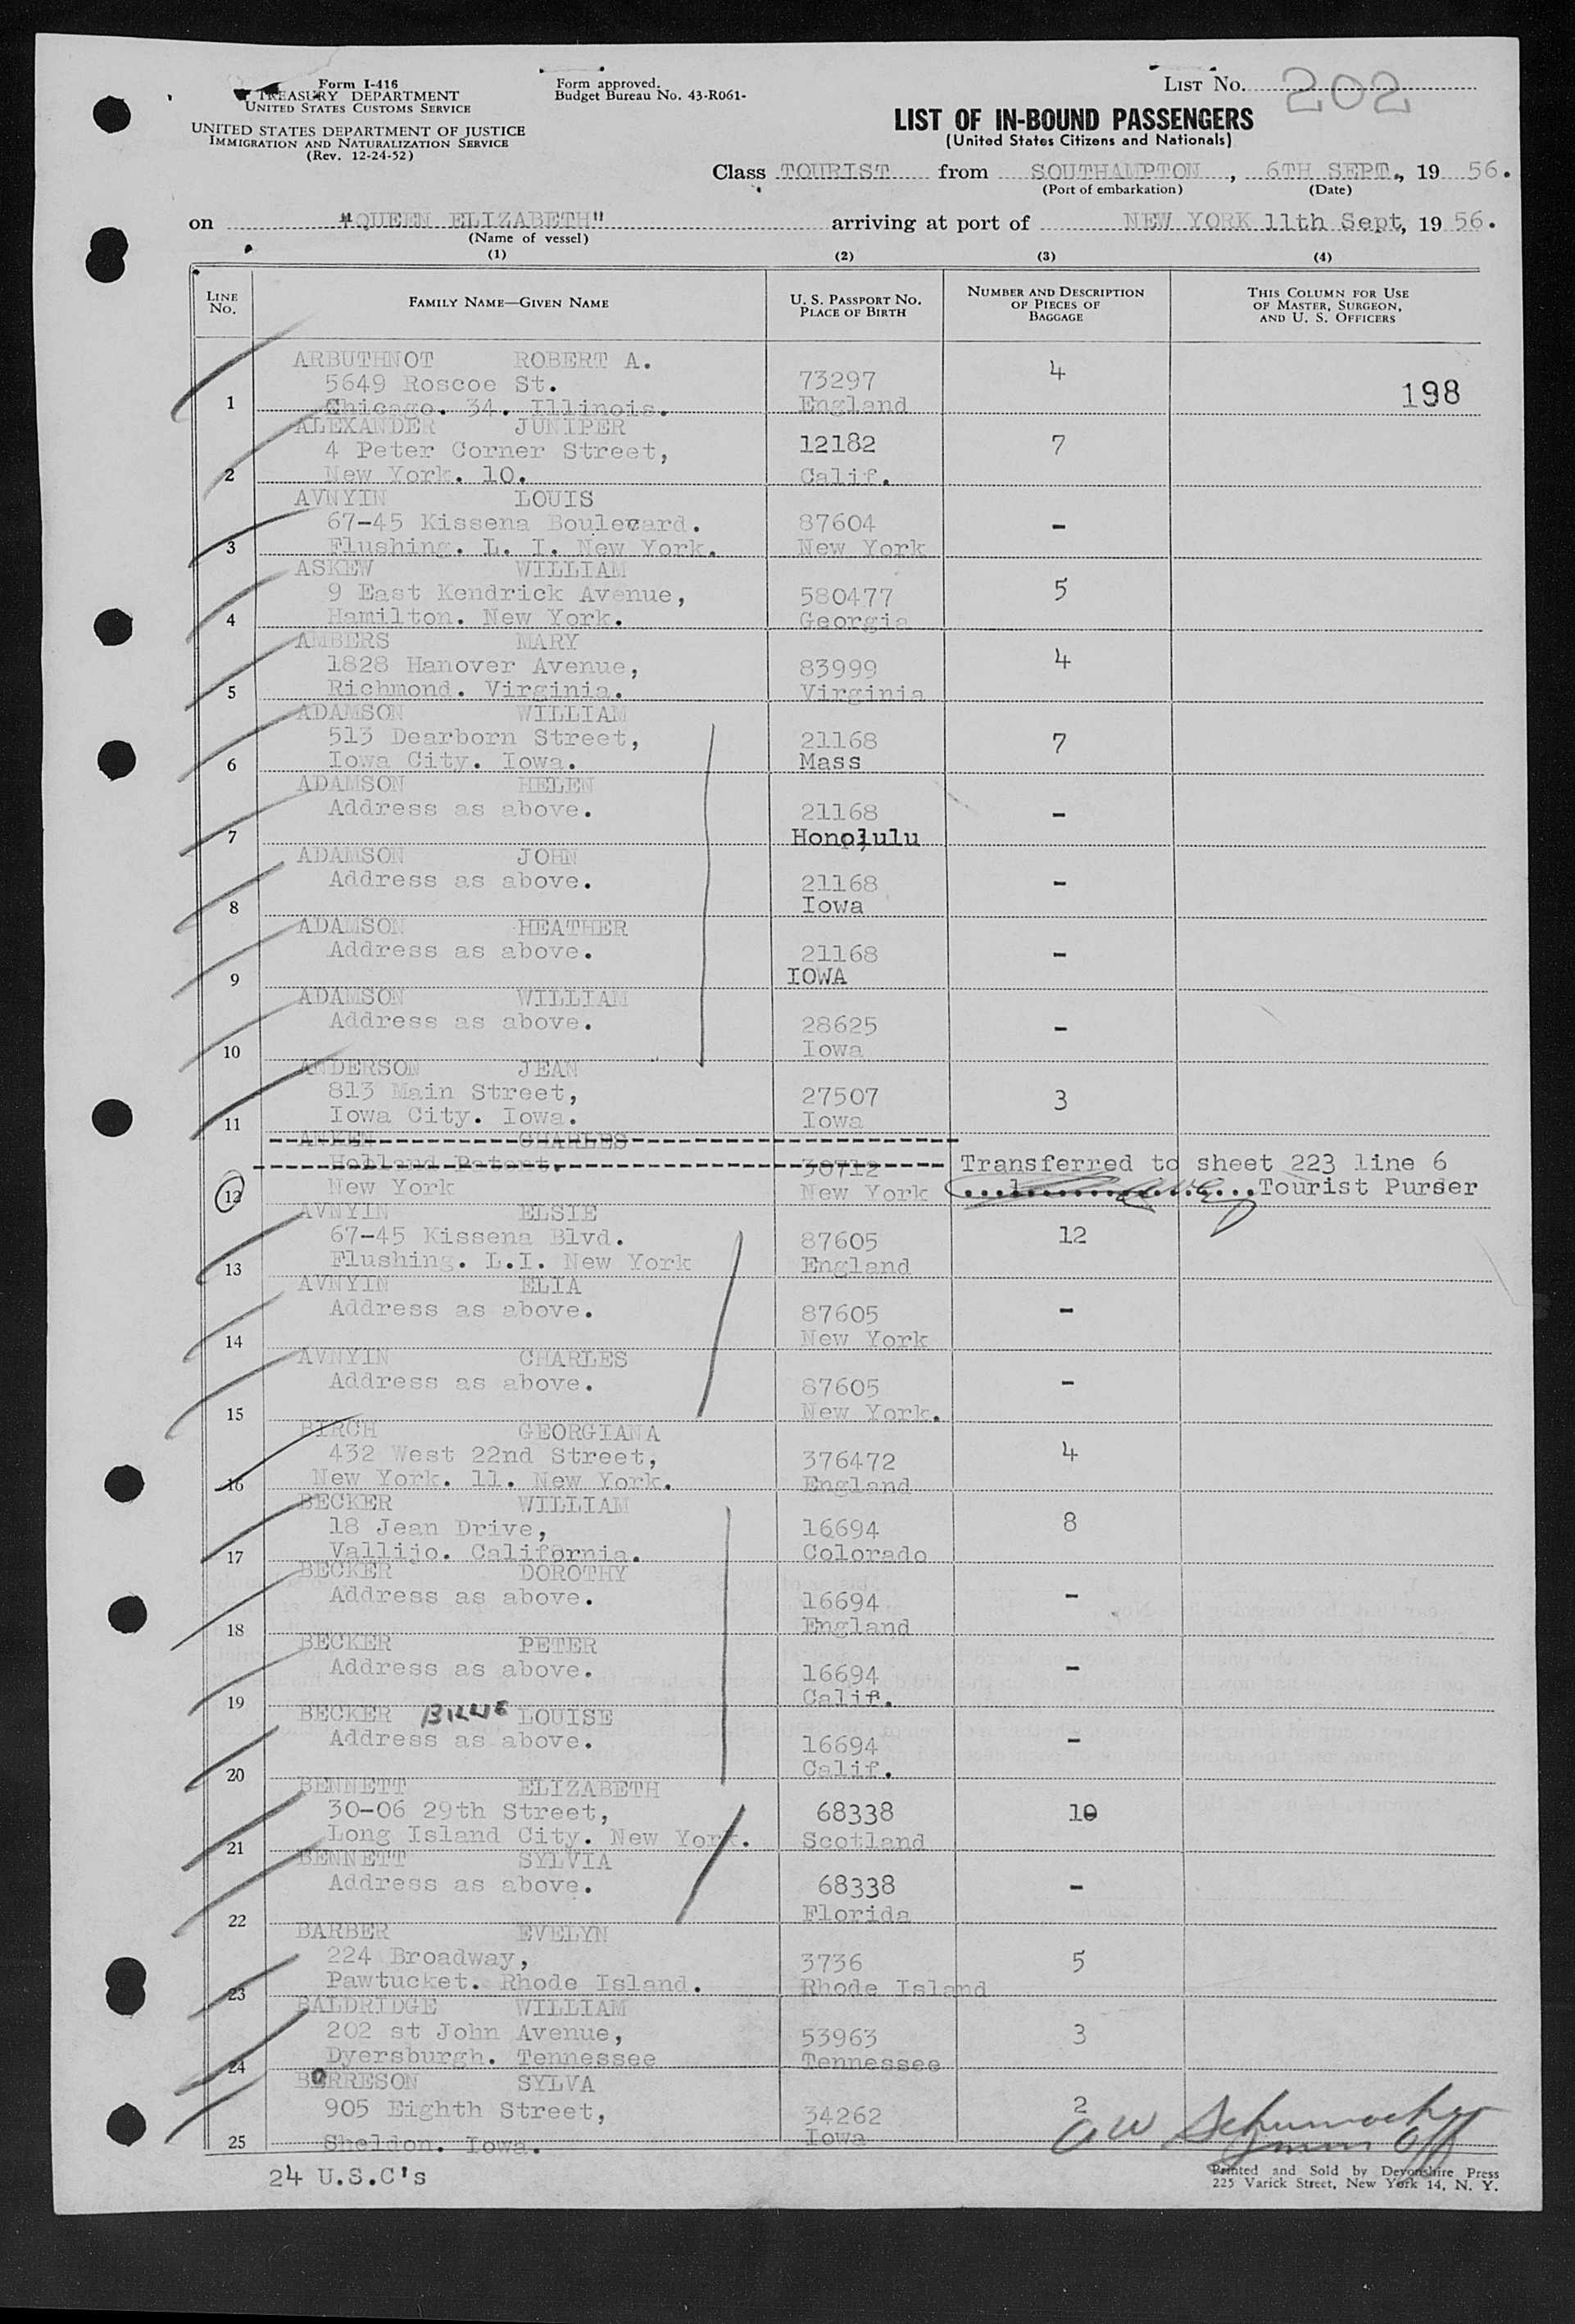 Form I-416
TREASURY DEPARTMENT
UNITED STATES CUSTOMS SERVICE
UNITED STATES DEPARTMENT OF JUSTICE
IMMIGRATION AND NATURALIZATION SERVICE
(Rev. 12-24-52)
Form approved.
Budget Bureau No. 43-R061-
LIST NO. 202
LIST OF IN-BOUND PASSENGERS
(United States Citizens and Nationals)
Class TOURIST from SOUTHAMPTON, 6TH SEPT., 19 56.
(Port of embarkation) (Date)
on "QUEEN ELIZABETH" arriving at port of NEW YORK 11th Sept, 19 56.
(Name of vessel)
(1) (2) (3) (4)
LINE NO. FAMILY NAME—GIVEN NAME U. S. PASSPORT NO. PLACE OF BIRTH NUMBER AND DESCRIPTION OF PIECES OF BAGGAGE THIS COLUMN FOR USE OF MASTER, SURGEON, AND U. S. OFFICERS
ARBUTHNOT ROBERT A. 4
5649 Roscoe St. 73297 198
1 Chicago. 34. Illinois. England
ALEXANDER JUNIPER
4 Peter Corner Street, 12182 7
2 New York. 10. Calif.
AVNYIN LOUIS
67-45 Kissena Boulevard. 87604 -
3 Flushing. L. I. New York. New York
ASKEW WILLIAM
9 East Kendrick Avenue, 580477 5
4 Hamilton. New York. Georgia
AMBERS MARY
1828 Hanover Avenue, 83999 4
5 Richmond. Virginia. Virginia
ADAMSON WILLIAM
513 Dearborn Street, 21168 7
6 Iowa City. Iowa. Mass
ADAMSON HELEN
Address as above. 21168 -
7 Honolulu
ADAMSON JOHN
Address as above. 21168 -
8 Iowa
ADAMSON HEATHER
Address as above. 21168 -
9 IOWA
ADAMSON WILLIAM
Address as above. 28625 -
10 Iowa
ANDERSON JEAN
813 Main Street, 27507 3
11 Iowa City. Iowa. Iowa
ANKEN CHARLES
Holland Patent. 30712 Transferred to sheet 223 line 6
12 New York New York Tourist Purser
AVNYIN ELSIE
67-45 Kissena Blvd. 87605 12
13 Flushing. L.I. New York England
AVNYIN ELIA
Address as above. 87605 -
14 New York
AVNYIN CHARLES
Address as above. 87605 -
15 New York.
BIRCH GEORGIANA
432 West 22nd Street, 376472 4
16 New York. 11. New York. England
BECKER WILLIAM
18 Jean Drive, 16694 8
17 Vallijo. California. Colorado
BECKER DOROTHY
Address as above. 16694 -
18 England
BECKER PETER
Address as above. 16694 -
19 Calif.
BECKER BILLIE LOUISE
Address as above. 16694 -
20 Calif.
BENNETT ELIZABETH
30-06 29th Street, 68338 10
21 Long Island City. New York. Scotland
BENNETT SYLVIA
Address as above. 68338 -
22 Florida
BARBER EVELYN
224 Broadway, 3736 5
23 Pawtucket. Rhode Island. Rhode Island
BALDRIDGE WILLIAM
202 st John Avenue, 53963 3
24 Dyersburgh. Tennessee Tennessee
BORRESON SYLVA
905 Eighth Street, 34262 2
25 Sheldon. Iowa. Iowa
OW Schumacher
Imm Off
24 U.S.C's
Printed and Sold by Devonshire Press
225 Varick Street, New York 14, N. Y.